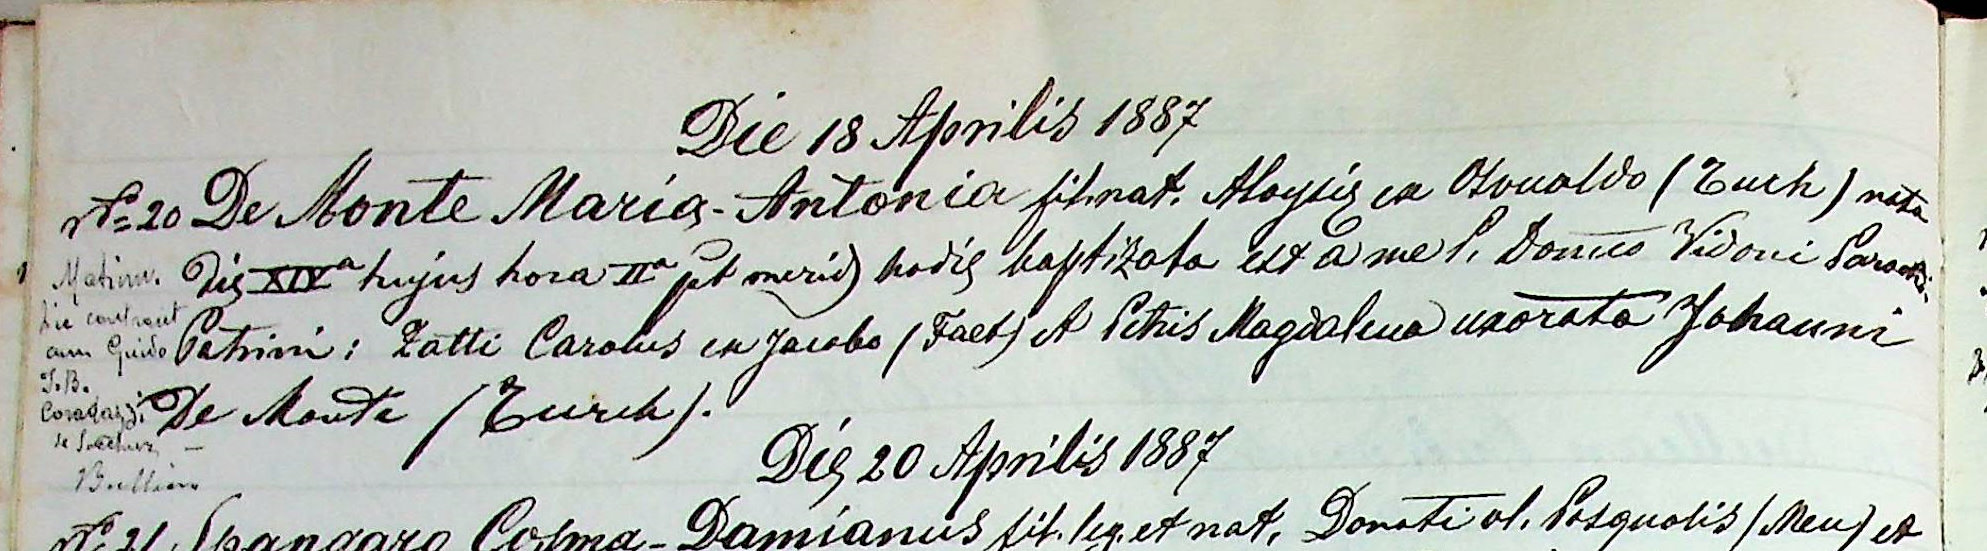 Die 18 Aprilis 1887
N.º 20 De Monte Maria-Antonia fil. nat. Aloysiæ ex Osvaldo (Turch) nata
Die XIXª hujus hora IIª pt merid) hodie baptizata est a me P. Domco Vidoni
Patrini: Zatti Carolus ex Jacobo (Faet) et Petris Magdalena uxorata Johanni
De Monte (Turch).
Matrim.
contraxit
cum Guido
J. B.
Coradazzi
de
Die 20 Aprilis 1887
N.º 21 Spangaro Cosma-Damianus fil. leg. et nat. Donati ol. Pasqualis (Meu) et